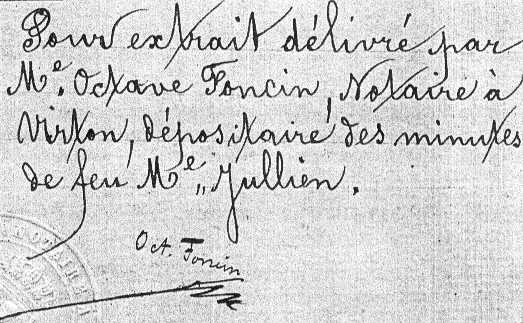 Pour extrait délivré par
Me. Octave Foncin, Notaire à
Virton, dépositaire des minutes
de feu Me,, Jullien.
Oct. Foncin